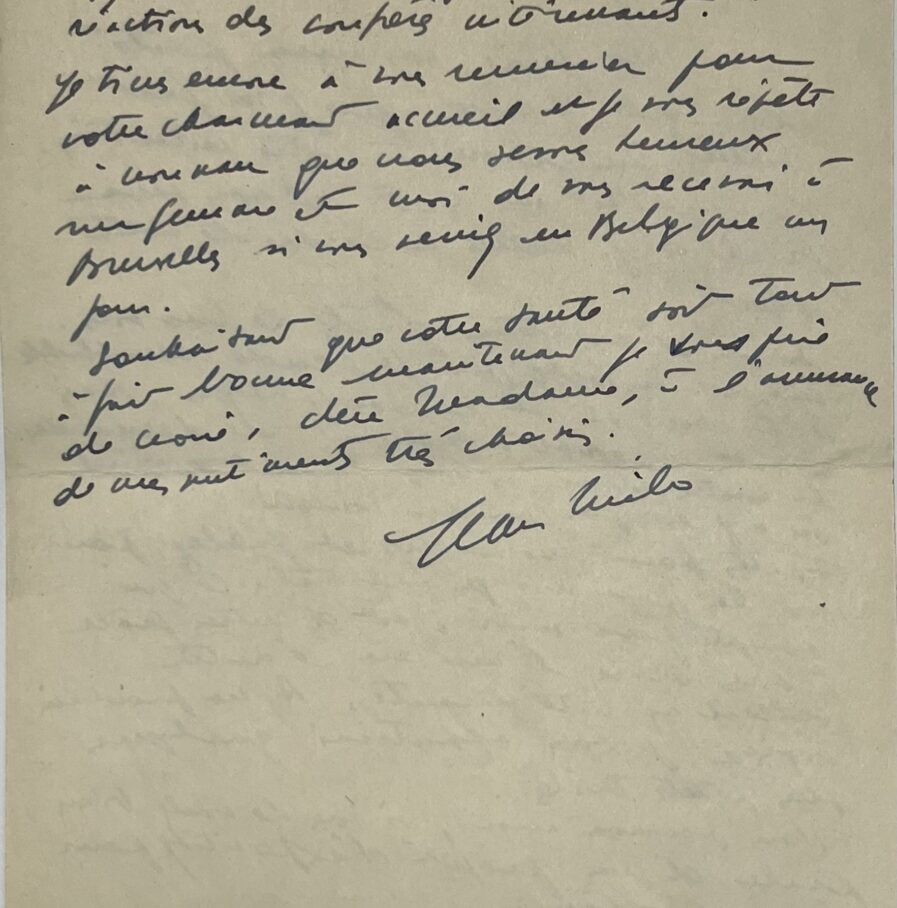 réaction des confrères intervenants.
Je tiens encore à vous remercier pour
votre charmant accueil et je vous répète
à nouveau que nous serons heureux
ma femme et moi de vous recevoir à
Bruxelles si vous venez en Belgique un
jour.
Souhaitant que votre santé soit tout
à fait bonne maintenant je vous prie
de croire, chère Madame, à l'assurance
de mes sentiments très choisis.
Jean Milo